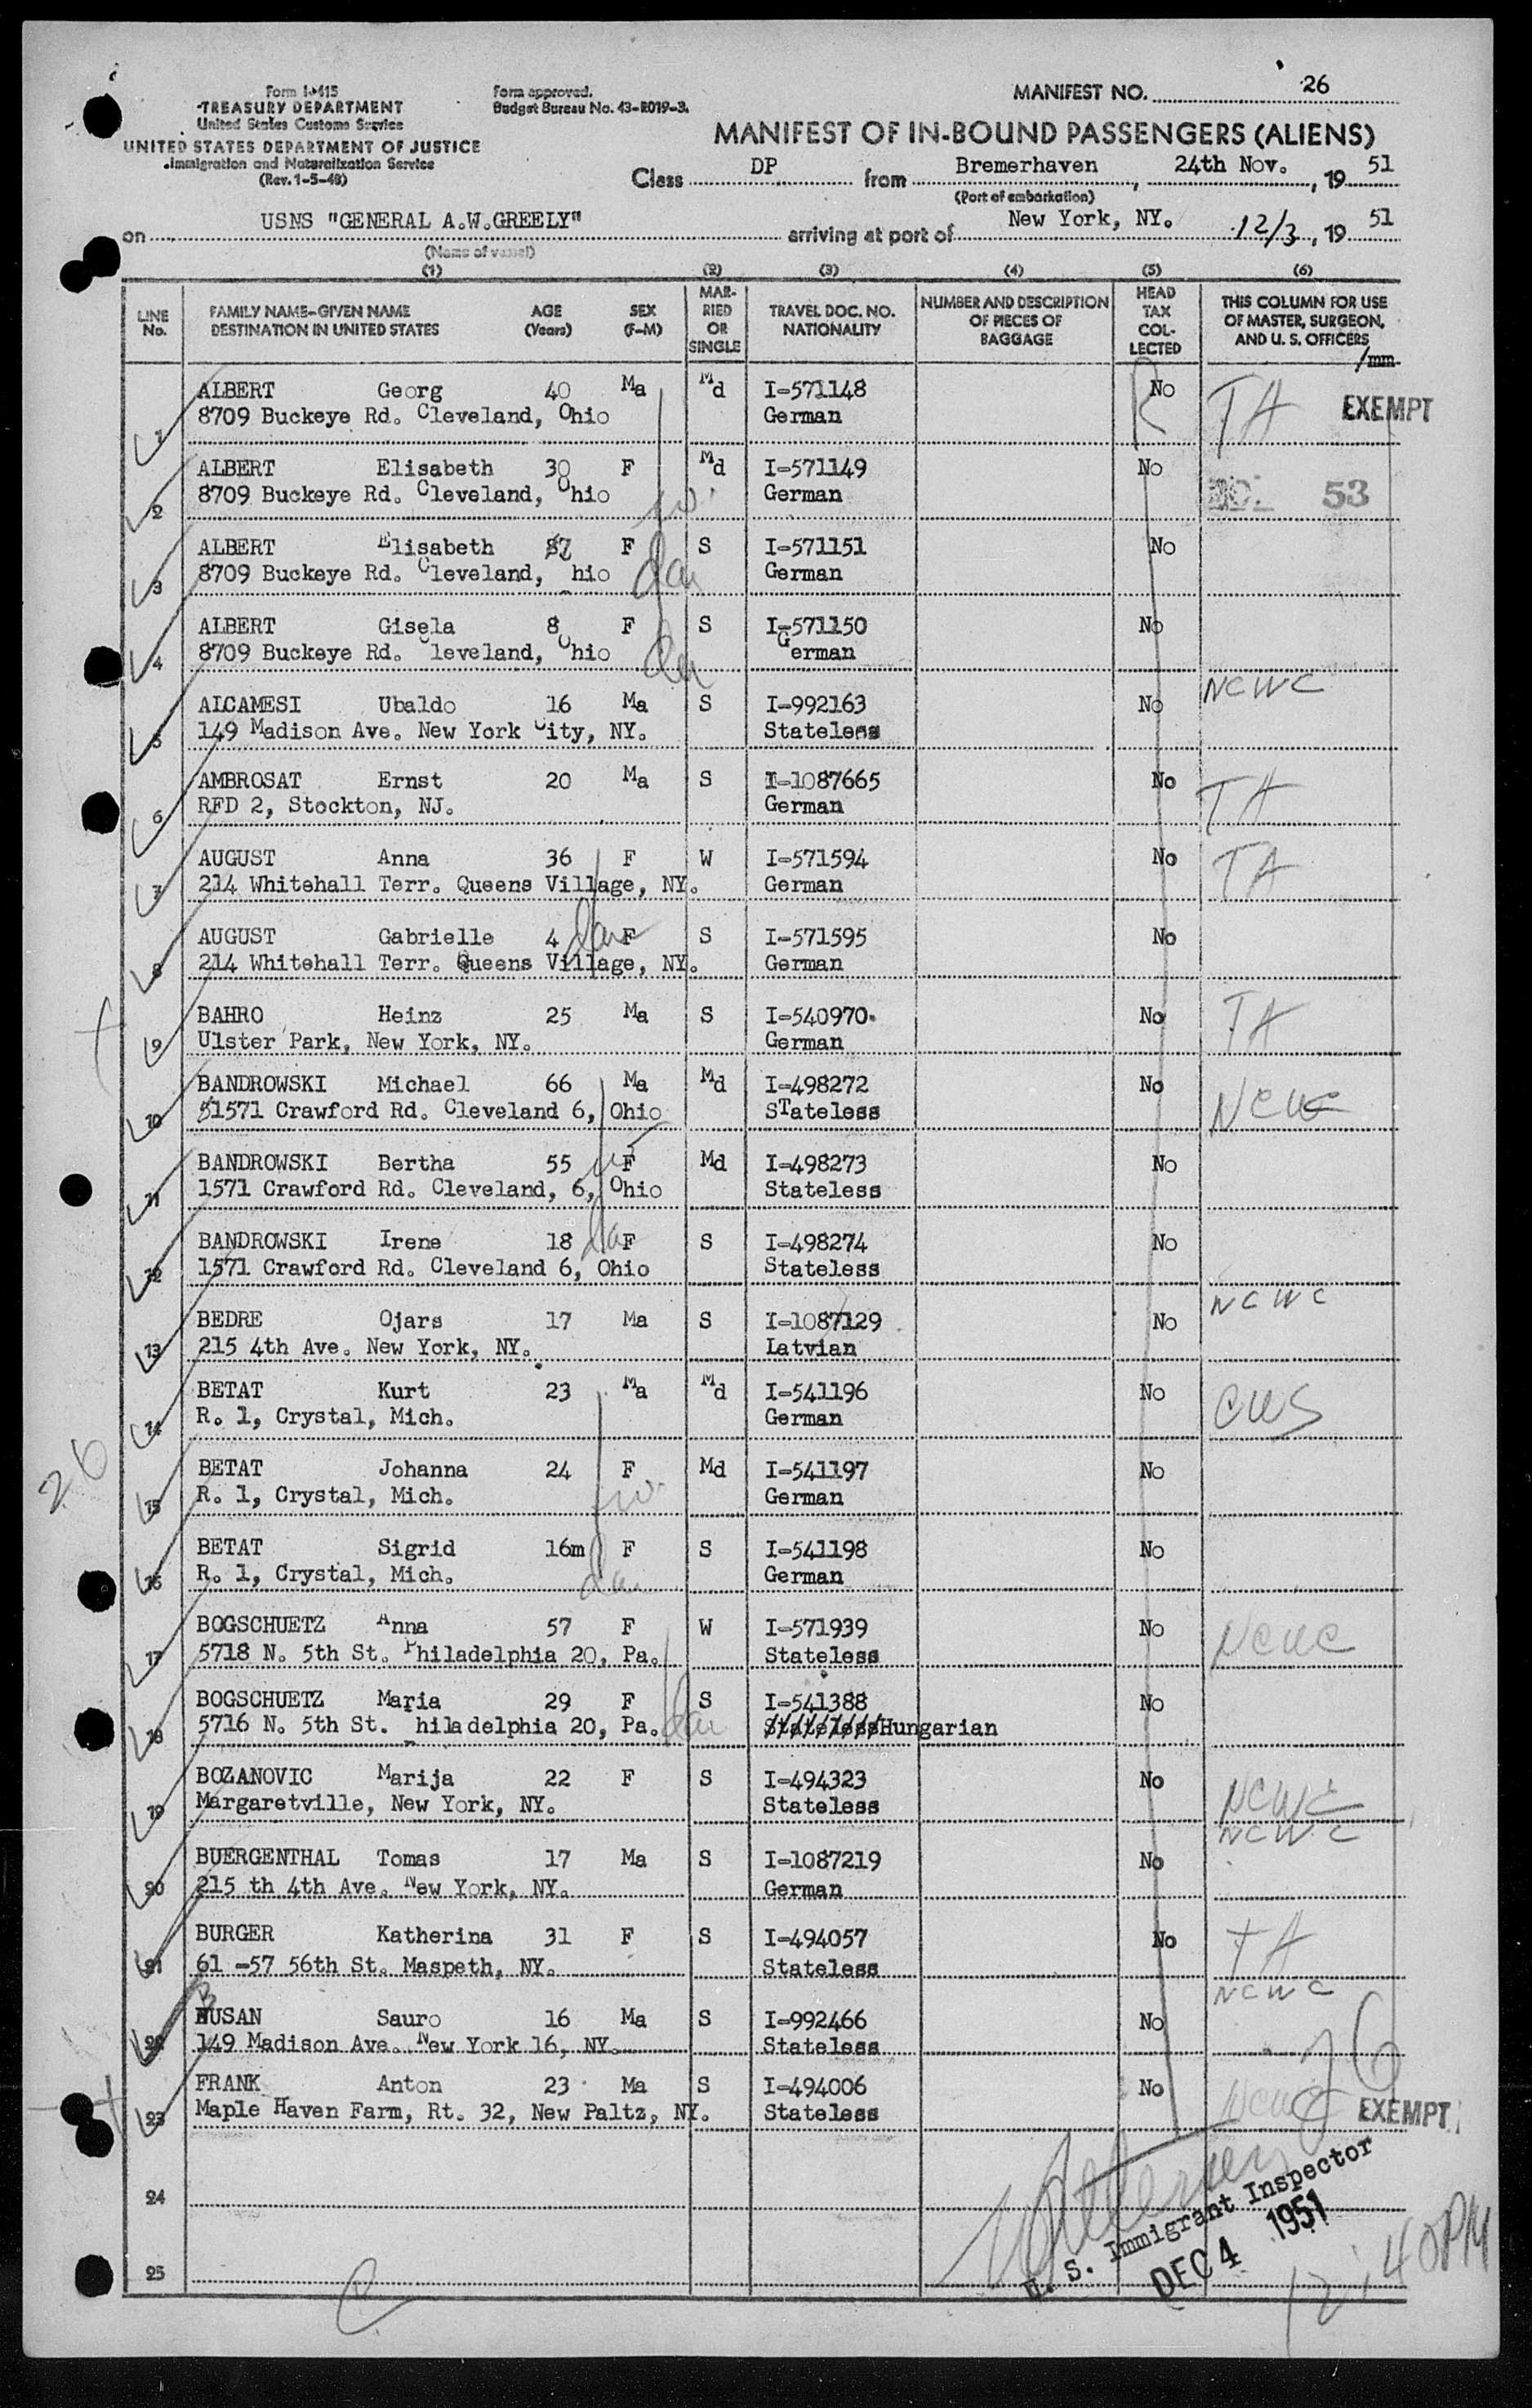 Form I-415
TREASURY DEPARTMENT
United States Customs Service
UNITED STATES DEPARTMENT OF JUSTICE
Immigration and Naturalization Service
(Rev. 1-5-48)
Form approved.
Budget Bureau No. 43-R019-3.
MANIFEST NO. 26
MANIFEST OF IN-BOUND PASSENGERS (ALIENS)
Class DP from Bremerhaven, 24th Nov., 19 51
(Port of embarkation)
on USNS "GENERAL A.W.GREELY" arriving at port of New York, NY. 12/3, 19 51
(Name of vessel)
(1) (2) (3) (4) (5) (6)
LINE No. FAMILY NAME-GIVEN NAME DESTINATION IN UNITED STATES AGE (Years) SEX (F-M) MARRIED OR SINGLE TRAVEL DOC. NO. NATIONALITY NUMBER AND DESCRIPTION OF PIECES OF BAGGAGE HEAD TAX COLLECTED THIS COLUMN FOR USE OF MASTER, SURGEON, AND U. S. OFFICERS
/mm
ALBERT Georg 40 Ma Md I-571148 No TA EXEMPT
1 8709 Buckeye Rd. Cleveland, Ohio German
ALBERT Elisabeth 30 F Md I-571149 No
2 8709 Buckeye Rd. Cleveland, Ohio w. German 53
ALBERT Elisabeth F S I-571151 No
3 8709 Buckeye Rd. Cleveland, hio dau German
ALBERT Gisela 8 F S I-571150 No
4 8709 Buckeye Rd. Cleveland, Ohio dau German
NCWC
ALCAMESI Ubaldo 16 Ma S I-992163 No
5 149 Madison Ave. New York City, NY. Stateless
AMBROSAT Ernst 20 Ma S I-1087665 No TA
6 RFD 2, Stockton, NJ. German
AUGUST Anna 36 F W I-571594 No TA
7 214 Whitehall Terr. Queens Village, NY. German
AUGUST Gabrielle 4 dau F S I-571595 No
8 214 Whitehall Terr. Queens Village, NY. German
BAHRO Heinz 25 Ma S I-540970. No TA
9 Ulster Park, New York, NY. German
BANDROWSKI Michael 66 Ma Md I-498272 No NCWC
10 51571 Crawford Rd. Cleveland 6, Ohio STateless
BANDROWSKI Bertha 55 w F Md I-498273 No
11 1571 Crawford Rd. Cleveland, 6, Ohio Stateless
BANDROWSKI Irene 18 da F S I-498274 No
12 1571 Crawford Rd. Cleveland 6, Ohio Stateless
NCWC
BEDRE Ojars 17 Ma S I-1087129 No
13 215 4th Ave. New York, NY. Latvian
BETAT Kurt 23 Ma Md I-541196 No CWS
14 R. 1, Crystal, Mich. German
BETAT Johanna 24 F Md I-541197 No
15 R. 1, Crystal, Mich. w. German
26
BETAT Sigrid 16m F S I-541198 No
16 R. 1, Crystal, Mich. da German
BOGSCHUETZ Anna 57 F W I-571939 No NCWC
17 5718 N. 5th St. Philadelphia 20, Pa. Stateless
BOGSCHUETZ Maria 29 F S I-541388 No
18 5716 N. 5th St. hiladelphia 20, Pa. dau Stateless Hungarian
BOZANOVIC Marija 22 F S I-494323 No NCWC
19 Margaretville, New York, NY. Stateless
NCWC
BUERGENTHAL Tomas 17 Ma S I-1087219 No
20 215 th 4th Ave. New York, NY. German
BURGER Katherina 31 F S I-494057 No TA
21 61 -57 56th St. Maspeth, NY. Stateless
NCWC
BUSAN Sauro 16 Ma S I-992466 No
22 149 Madison Ave. New York 16, NY. Stateless 26
FRANK Anton 23 Ma S I-494006 No NCWC EXEMPT
23 Maple Haven Farm, Rt. 32, New Paltz, NY. Stateless
24
25
U. S. Immigrant Inspector
DEC 4 1951
12:40PM